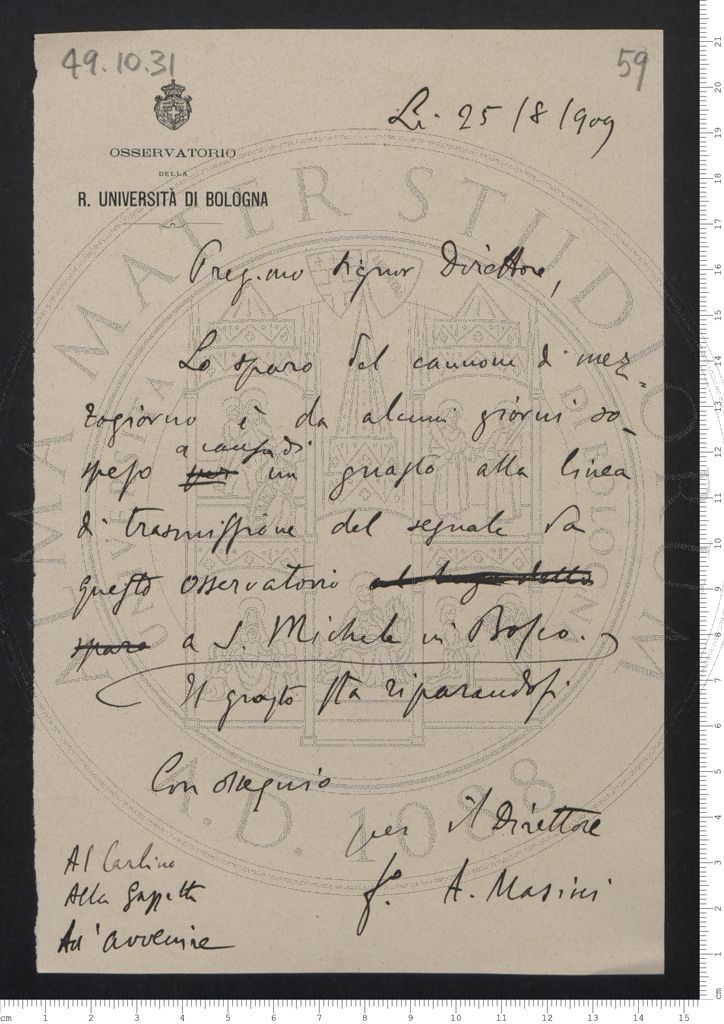 49.10.31
59
OSSERVATORIO
DELLA
R. UNIVERSITÀ DI BOLOGNA
Li. 25/8/909
Preg.mo Signor Direttore,
Lo sparo del cannone di mez-
zogiorno è da alcuni giorni so-
speso per a causa di un guasto alla linea
di trasmissione del segnale da
questo osservatorio al luogo dello
sparo a S. Michele in Bosco.
Il guasto sta riparandosi.
Con ossequio
per il Direttore
f.° A. Masini
Al Carlino
Alla Gazzetta
All'avvenire
ALMA MATER STUDIORUM
UNIVERSITÀ DI BOLOGNA
A.D. 1088
cm 1 2 3 4 5 6 7 8 9 10 11 12 13 14 15
cm 1 2 3 4 5 6 7 8 9 10 11 12 13 14 15 16 17 18 19 20 21